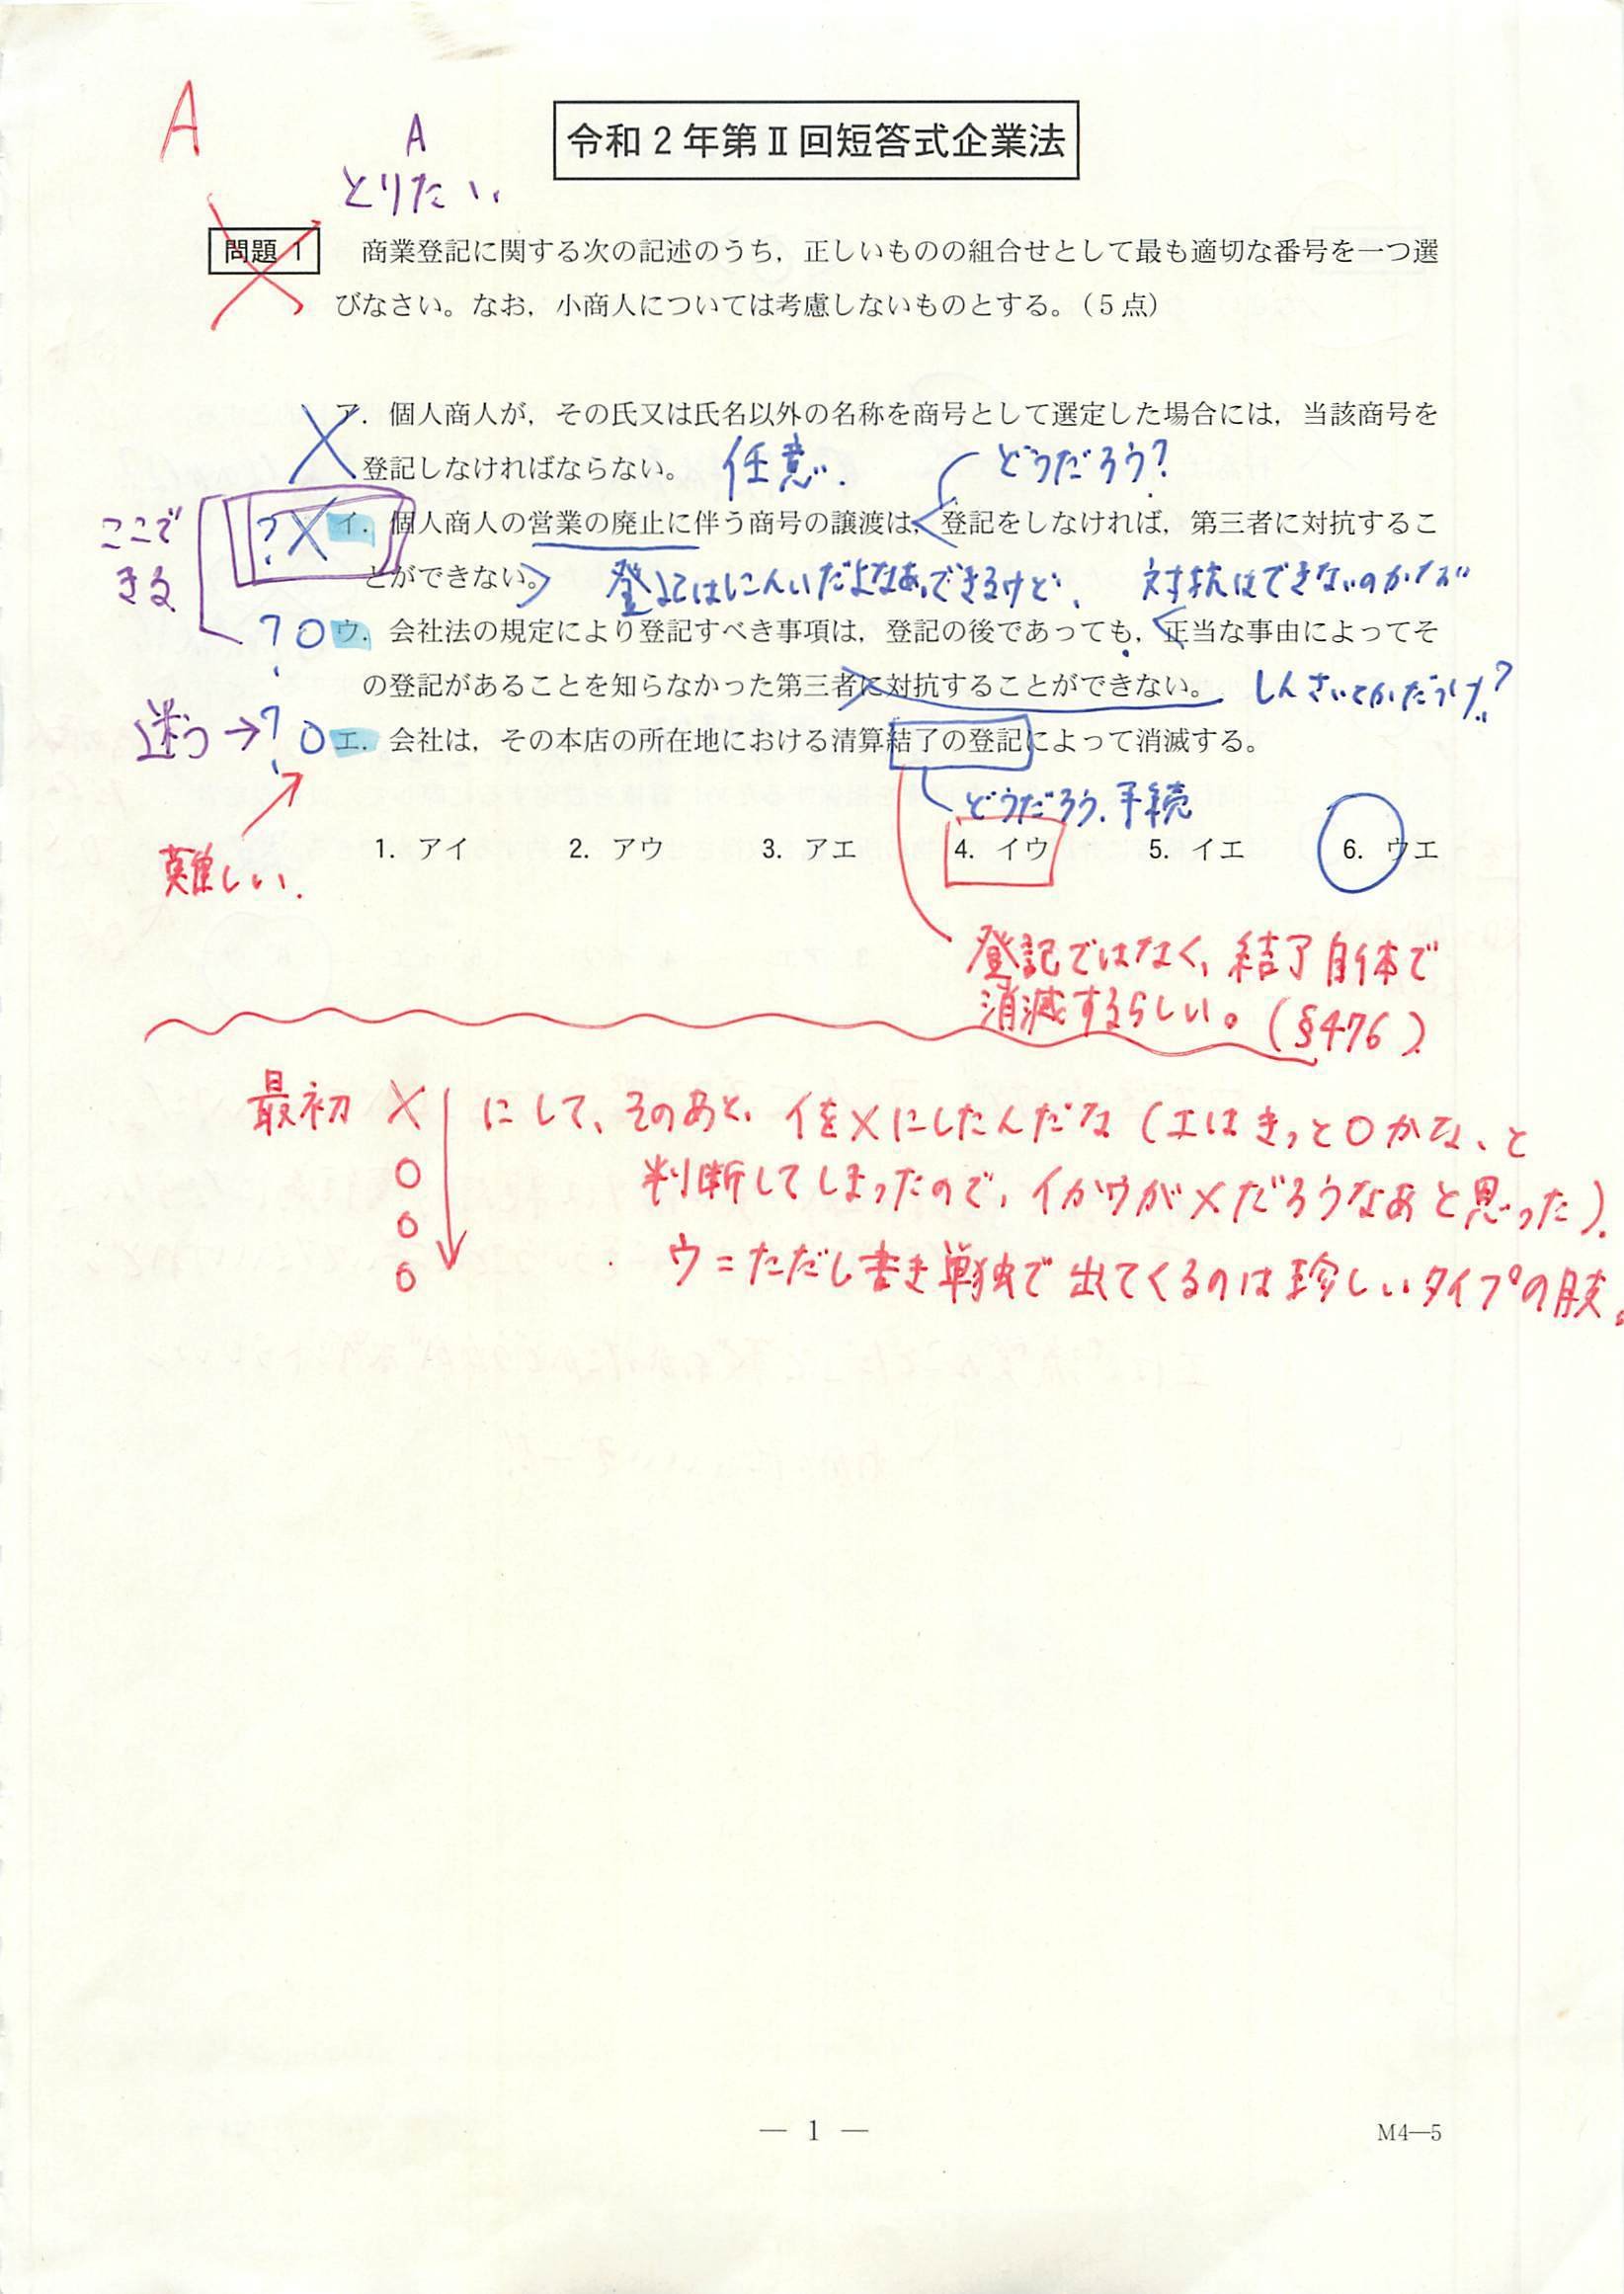 A
A
とりたい、
令和2年第Ⅱ回短答式企業法
問題 1 商業登記に関する次の記述のうち，正しいものの組合せとして最も適切な番号を一つ選
びなさい。なお，小商人については考慮しないものとする。（5点）
× ア．個人商人が，その氏又は氏名以外の名称を商号として選定した場合には，当該商号を
登記しなければならない。 任意. どうだろう?
ここで
きる
?× イ．個人商人の営業の廃止に伴う商号の譲渡は，登記をしなければ，第三者に対抗するこ
とができない。 登記はにんいだよなあ。できるけど、 対抗はできないのかなあ
?○ ウ．会社法の規定により登記すべき事項は，登記の後であっても，正当な事由によってそ
の登記があることを知らなかった第三者に対抗することができない。 しんさいとかだっけ?
迷う→?○ エ．会社は，その本店の所在地における清算結了の登記によって消滅する。
どうだろう.手続
難しい.
1．アイ 2．アウ 3．アエ 4．イウ 5．イエ 6．ウエ
登記ではなく、結了自体で
消滅するらしい。(§476)
最初 × にして、そのあと、イを×にしたんだな(エはきっと○かな、と
○ 判断してしまったので、イかウが×だろうなあと思った).
○
○ ウ=ただし書き単独で出てくるのは珍しいタイプの肢。
— 1 —
M4—5